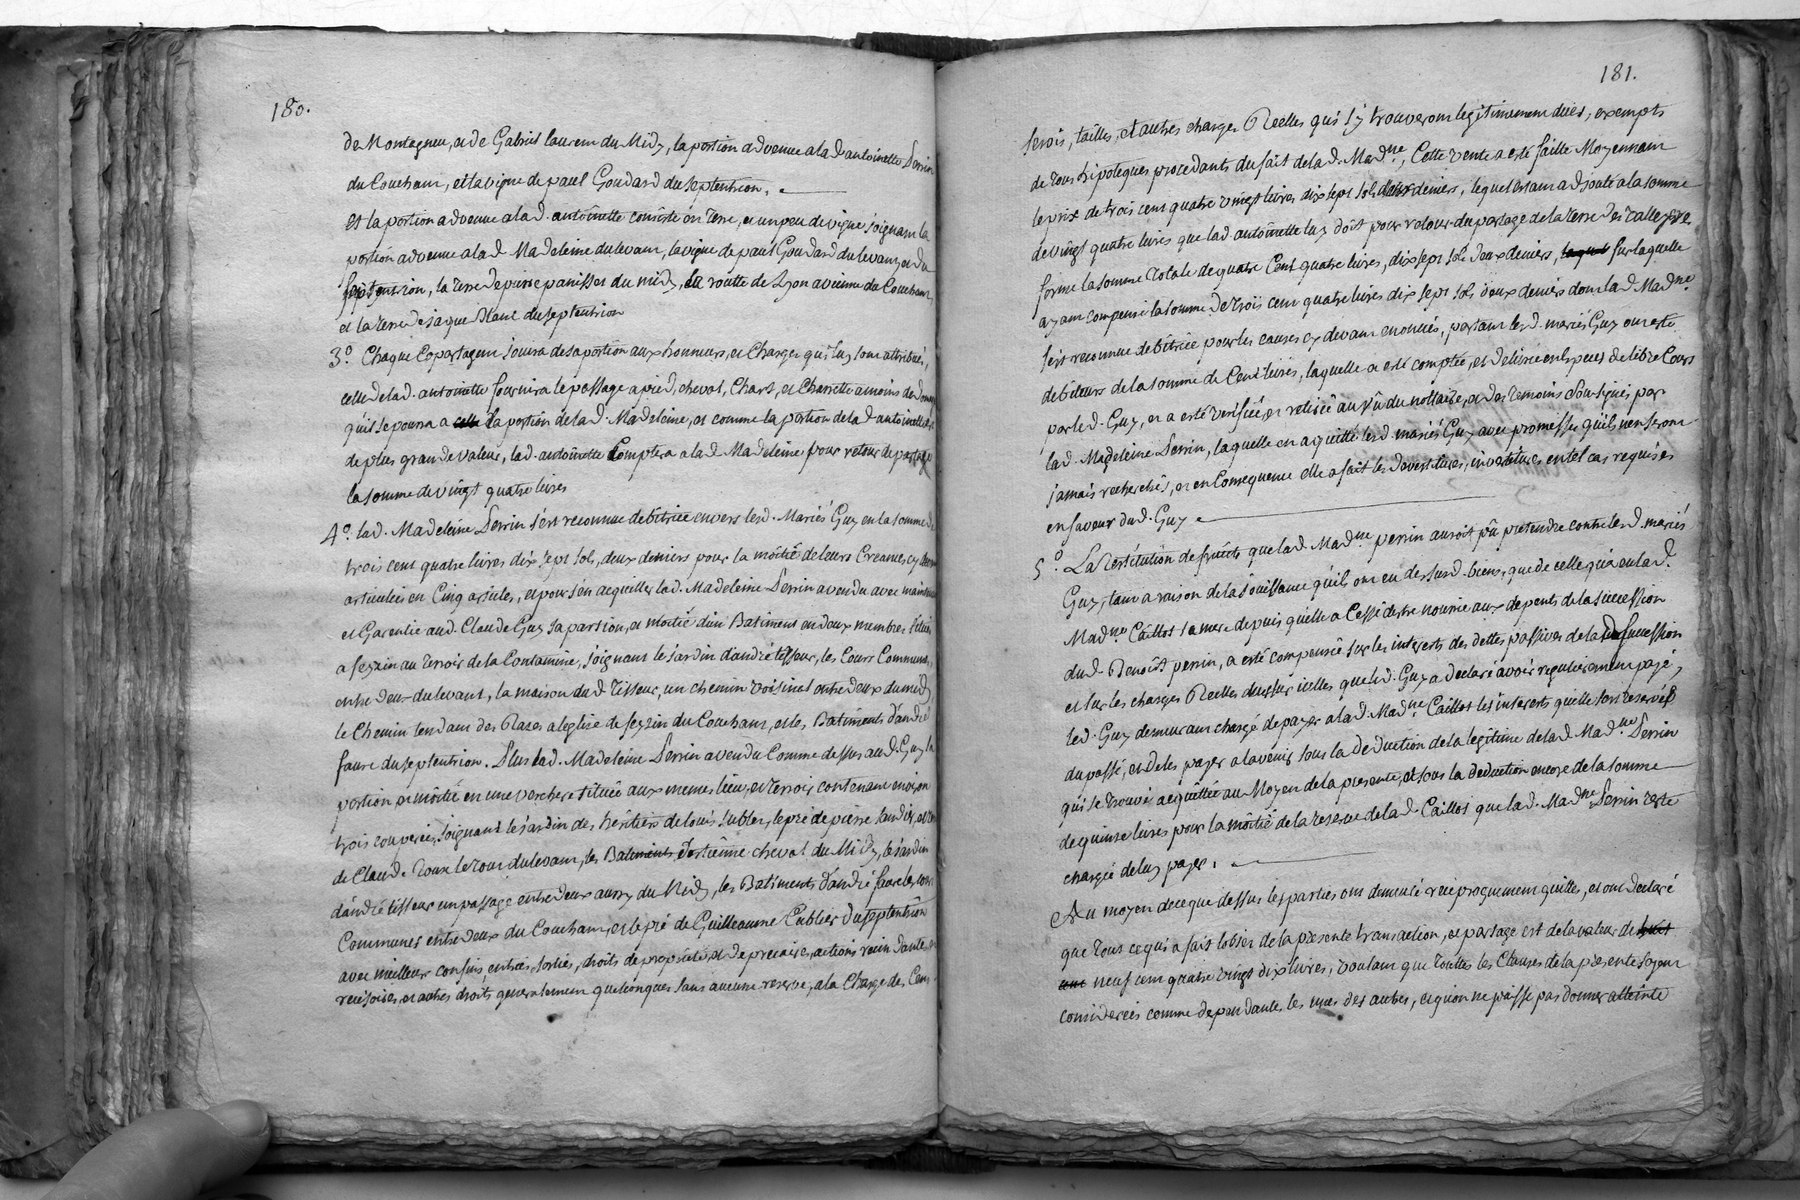 180.
de Montagneu, et de Gabriel laurent du Midy, la portion advenue a lad antoinette Perrin
du Couchant, et la vigne de paul Goudard du septentrion.
Et la portion advenue a lad. antoinette consiste en terre, et un peu de vigne joignant la
portion advenue a lad Madeleine du levant, la vigne de paul Goudard du levant, et du
septentrion, la terre de pierre panisset du midy, la routte de Lyon a vienne du Couchant,
et la terre de jaque blanc du septentrion
3.° Chaque Copartageant jouira de sa portion aux honneurs, et Charges qui luy sont attribués,
celle de lad. antoinette fournira le passage a pied, cheval, Chart, et Charrette a moins de
qu'il se pourra a la portion de lad. Madeleine, et comme la portion de lad antoinette est
de plus grande valeur, lad. antoinette Comptera a lad Madeleine pour retour de partage
la somme de vingt quatre livres
4.° lad. Madeleine Perrin s'est reconnue debitrice envers lesd. Mariés Guy en la somme de
trois cent quatre livres, dix sept sols, deux deniers pour la moitié de leurs Creances cy
articulées en Cinq articles, et pour s'en acquitter lad. Madeleine Perrin a vendu avec
et Garentie aud. Claude Guy sa partion, et moitié d'un Batiment en deux membres situés
a feyzin au terroir de la Contamine, joignant le jardin d'andré tisseur, les Cours Communes,
entre deux du levant, la maison dud Tisseur, un chemin voisinal entre deux du midy
le Chemin tendant des Razes a leglise de feyzin du Couchant, et les Batiments d'andré
faure du septentrion. Plus lad. Madeleine Perrin a vendu Comme dessus aud. Guy la
portion et moitié en une verchere située aux memes lieu, et terroir contenant environ
trois couverées, joignant le jardin des heritiers de louis sublet, le pré de pierre et
de Claude Roux le tout du levant, les Batiments cheval du Midy, le jardin
d'andré tisseur un passage entre deux aussy du Midy, les Batiments d'andré faure les cours
Communes entre deux du Couchant, et le pré de Guilleaume Publier du septentrion
avec meilleurs confins entrées, sorties, droits de propriété, et de precaire, actions rescindantes, et
rescisoires, et autres droits generalement quelconques sans aucune reserve, a la Charge des Cens
181.
servis, tailles, et autres charges Reelles qui s'y trouveront legitimement duës, exempts
de tous hipoteques procedants du fait de lad. Mad.ne, Cette vente a esté faitte Moyennant
le prix de trois cent quatre vingt livres dix sept sols deux deniers, lequel estant adjouté a la somme
de vingt quatre livres que lad antoinette luy doit pour retour du partage de la terre des
forme la somme totale de quatre Cent quatre livres, dix sept sols deux deniers, laquel sur laquelle
ayant compensé la somme de trois cent quatre livres dix sept sols deux deniers dont lad Mad.ne
s'est reconnue debitrice pour les causes cy devant enoncées, partant lesd. mariés Guy ont esté
debiteurs de la somme de Cent livres, laquelle a esté comptée, et delivrée en Especes de libre Cours
par led. Guy, et a esté verifiée, et retirée au vû du nottaire, et des temoins soussignés par
lad. Madeleine Perrin, laquelle en a quitté lesd mariés Guy avec promesses qu'ils n'en seront
jamais recherchés, et en Consequence elle a fait les devestitures, investitures en tel cas requises
en faveur dud. Guy
5.° La restitution de fruits que lad Mad.ne perrin auroit pû pretendre contre lesd. mariés
Guy, tant a raison de la Jouissance qu'ils ont eu des susd. biens, que de celle qu'a eu lad.
Mad.ne Caillot sa mere depuis qu'elle a Cessé d'estre nourrie aux depents de la succession
dud. Benoît perrin, a esté compensée sur les interests des dettes passives de lad succession
et sur les charges Reelles dues sur icelles que led. Guy a declaré avoir regulierement payé,
led. Guy demeurant chargé de payer a lad. Mad.ne Caillot les interests qu'elle s'est reservés
du passé, et de les payer a l'avenir sous la deduction de la legitime de lad Mad.ne Perrin
qui se trouve acquittée au Moyen de la presente, et sous la deduction encore de la somme
de quinse livres pour la moitié de la reserve de lad. Caillot que lad. Mad.ne Perrin reste
chargée de luy payer.
Au moyen de ce que dessus les parties ont demeuré reciproquement quittes, et ont declaré
que tous ce qui a fait l'objet de la presente transaction, et partage est de la valeur de huit
cent neuf cent quatre vingt dix livres, voulant que touttes les Clauses de la presente soyent
considerées comme dependantes les unes des autres, et qu'on ne puisse pas donner atteinte